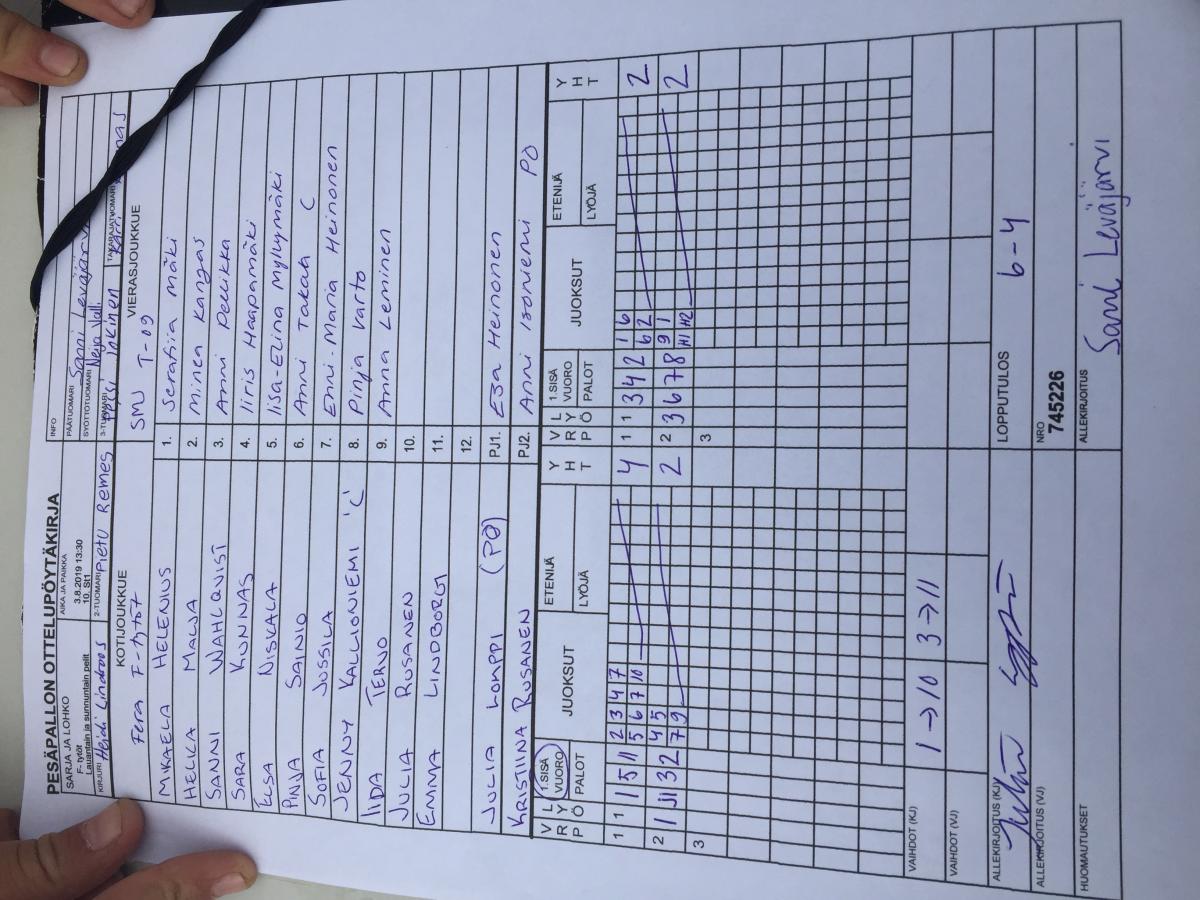 PESÄPALLON OTTELUPÖYTÄKIRJA
SARJA JA LOHKO AIKA JA PAIKKA INFO
F- tytöt 3.8.2019 13:30 PÄÄTUOMARI Sanni Leväjärvi
Lauantain ja sunnuntain pelit 10. St1 SYÖTTÖTUOMARI Neija Valli
KIRJURI Heidi Lindroos 2-TUOMARI Pietu Remes 3-TUOMARI Jokinen TAKARAJATUOMARI
KOTIJOUKKUE VIERASJOUKKUE
Fera F-tytöt SMJ T-09
MIKAELA HELENIUS 1. Serafiia Mäki
HELKA MALJA 2. Minea Kangas
SANNI WAHLQVIST 3. Anni Pollikka
SARA KUNNAS 4. Iiris Haapamäki
ELSA NISKALA 5. Iisa-Elina Myllymäki
PINJA SAINIO 6. Anni Takala C
SOFIA JUSSILA 7. Enni-Maria Heinonen
JENNY KALLIONIEMI 'C' 8. Pinja Varto
IIDA TERVO 9. Anna Leminen
JULIA RUSANEN 10.
EMMA LINDBORG 11.
12.
JULIA LONPPI (PÖ) PJ1. Esa Heinonen
KRISTIINA RUSANEN PJ2. Anni Isoniemi PÖ
VRP LYÖ 1.SISÄ VUORO PALOT JUOKSUT ETENIJÄ LYÖJÄ YHT VRP LYÖ 1.SISÄ VUORO PALOT JUOKSUT ETENIJÄ LYÖJÄ YHT
1 1 1 5 11 2 3 4 7 4 1 1 3 4 2 1 6 2
5 6 7 10 6 2
2 1 11 3 2 4 5 2 2 3 6 7 8 9 1 2
7 9 H1 H2
3 3
VAIHDOT (KJ) 1→10 3→11
VAIHDOT (VJ)
ALLEKIRJOITUS (KJ) LOPPUTULOS 6-4
ALLEKIRJOITUS (VJ) NRO 745226
HUOMAUTUKSET ALLEKIRJOITUS Sanni Leväjärvi